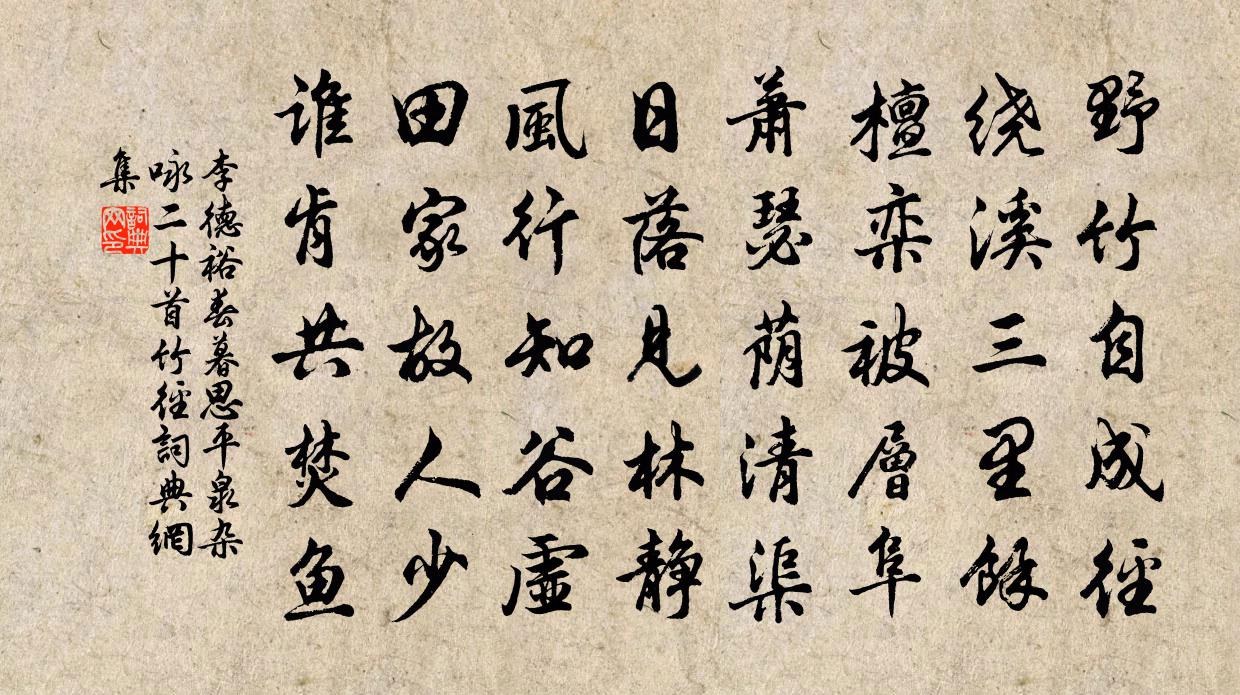 野竹自成径
绕溪三里馀
檀栾被层阜
萧瑟荫清渠
日落见林静
風行知谷虚
田家故人少
谁肯共焚鱼
李德裕春暮思平泉杂
咏二十首竹径詞典網
集
詞典
网印